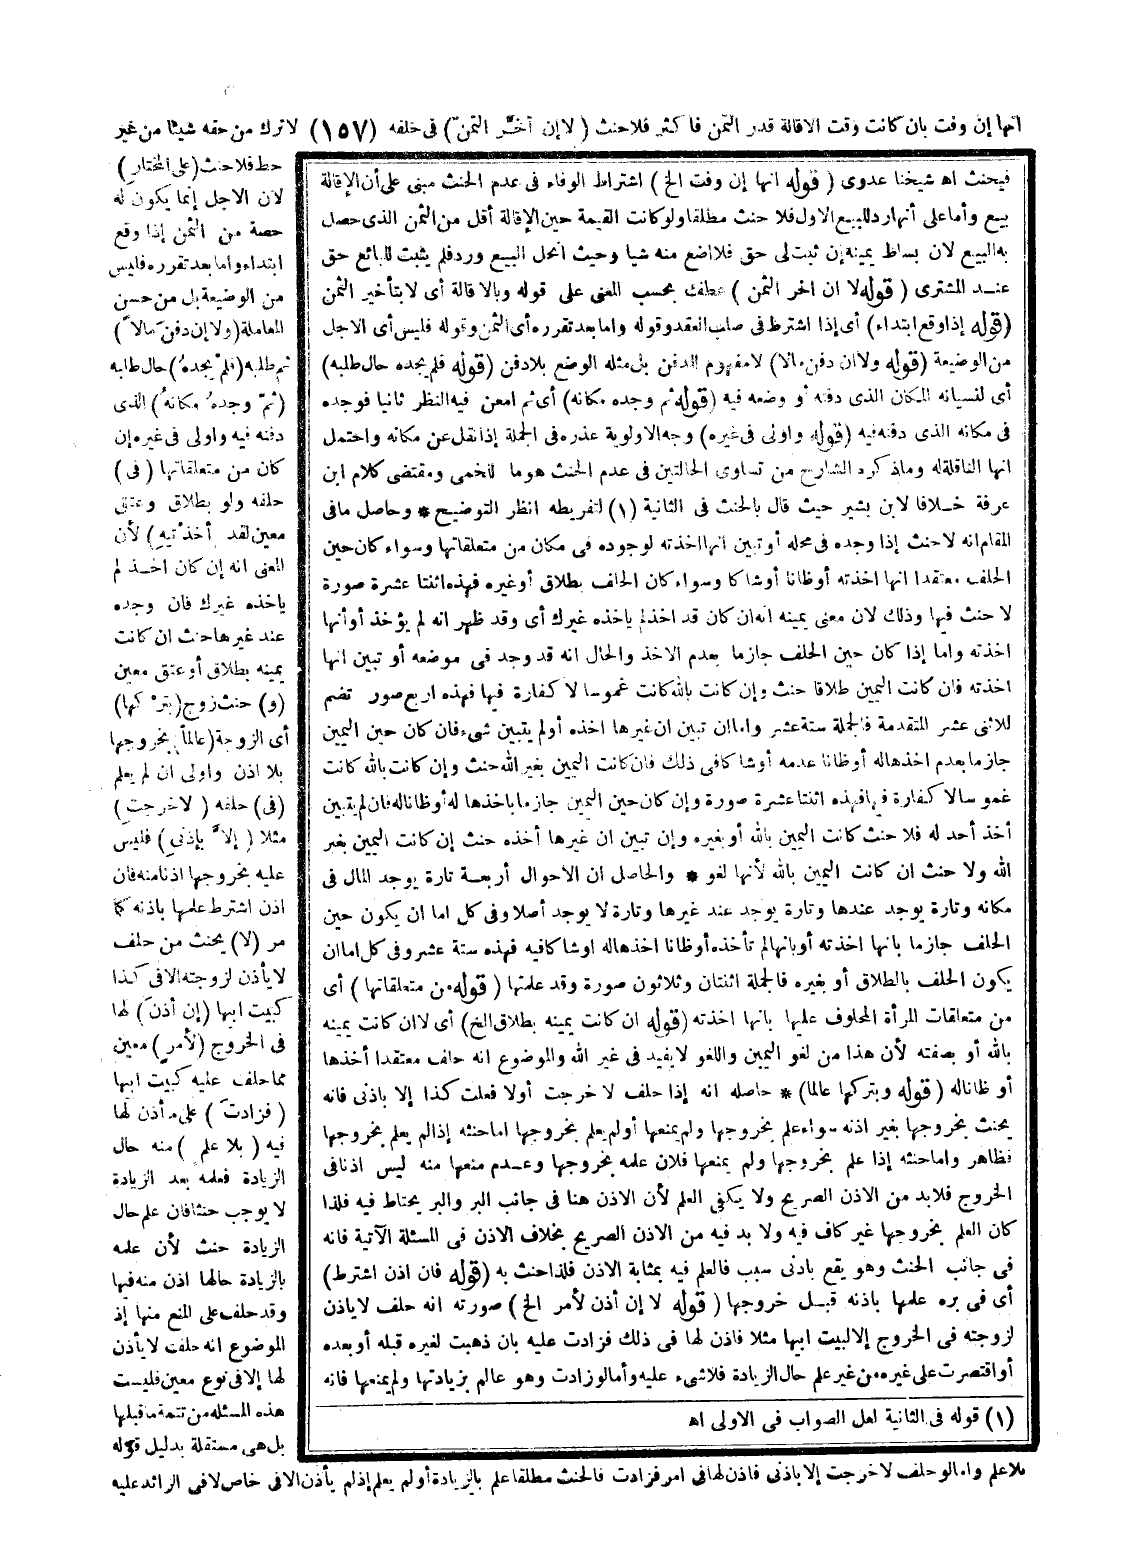 انها إن وفت بان كانت وقت الاقالة قدر الثمن فاكثر فلاحنث ( لاإن أخَّر الثمنَ ) فى حلفه (١٥٧) لاترك من حقه شيئا من غير
حط فلاحنث (على المختارِ)
لان الاجل إنما يكون له
حصة من الثمن إذا وقع
ابتداء واما بعد تقرره فليس
من الوضيعة بل من حسن
المعاملة (ولاإن دفنَ مالاً)
ثم طلبه (فلمْ يجدهُ) حال طلبه
(ثمّ وجدهُ مكانهُ) الذى
دفنه فيه واولى فى غيره إن
كان من متعلقاتها (فى)
حلفه ولو بطلاق وعتق
معين لقد (أخذتيهِ) لأن
المعنى انه إن كان اخذ لم
ياخذه غيرك فان وجده
عند غيرها حنث ان كانت
يمينه بطلاق أو عتق معين
(و) حنث زوج (بتركها)
أى الزوجة (عالماً) بخروجها
بلا اذن واولى ان لم يعلم
(فى) حلفه ( لاخرجتِ)
مثلا ( إلاَّ بإذنىِ) فليس
عليه بخروجها اذنا منه فان
اذن اشترط علمها باذنه كما
مر (لا) يحنث من حلف
لايأذن لزوجته الا فى كذا
كبيت ابيها (إن أذنَ) لها
فى الخروج (لأمرٍ) معين
مما حلف عليه كبيت ابيها
( فزادتَ ) على ما أذن لها
فيه ( بلا علم ) منه حال
الزيادة فعلمه بعد الزيادة
لا يوجب حنثا فان علم حال
الزيادة حنث لأن علمه
بالزيادة حالها اذن منه فيها
وقد حلف على المنع منها إذ
الموضوع انه حلف لايأذن
لها إلا فى نوع معين فليست
هذه المسئله من تتمة ماقبلها
بل هى مستقلة بدليل قوله
بلا علم واما لو حلف لاخرجت إلا باذنى فاذن لها فى امر فزادت فالحنث مطلقا علم بالزيادة أو لم يعلم إذ لم يأذن الا فى خاص لافى الزائد عليه
فيحنث اه شيخنا عدوى ( قوله انها إن وفت الخ ) اشتراط الوفاء فى عدم الحنث مبنى على أن الإقالة
بيع وأما على أنها رد للبيع الاول فلا حنث مطلقا ولو كانت القيمة حين الإقالة أقل من الثمن الذى حصل
به البيع لان بساط يمينه إن ثبت لى حق فلا اضع منه شيا وحيث انحل البيع ورد فلم يثبت للبائع حق
عند المشترى ( قوله لا ان اخر الثمن ) عطف بحسب المعنى على قوله وبالاقالة أى لا بتأخير الثمن
(قوله إذا وقع ابتداء) أى إذا اشترط فى صلب العقد وقوله واما بعد تقرره أى الثمن وقوله فليس أى الاجل
من الوضيعة (قوله ولا ان دفن مالا) لا مفهوم الدفن بل مثله الوضع بلا دفن (قوله فلم يجده حال طلبه)
أى لنسيانه المكان الذى دفنه أو وضعه فيه (قوله ثم وجده مكانه) أى ثم امعن فيه النظر ثانيا فوجده
فى مكانه الذى دفنه فيه (قوله واولى فى غيره) وجه الاولوية عذره فى الجملة إذا نقل عن مكانه واحتمل
انها الناقلة له وما ذكره الشارح من تساوى الحالتين فى عدم الحنث هو ما للخمى ومقتضى كلام ابن
عرفة خلافا لابن بشير حيث قال بالحنث فى الثانية (١) لتفريطه انظر التوضيح * وحاصل مافى
المقام انه لاحنث إذا وجده فى محله أو تبين انها اخذته لوجوده فى مكان من متعلقاتها وسواء كان حين
الحلف معتقدا انها اخذته أوظانا أوشاكا وسواء كان الحلف بطلاق أوغيره فهذه اثنتا عشرة صورة
لا حنث فيها وذلك لان معنى يمينه انه ان كان قد اخذ لم ياخذه غيرك أى وقد ظهر انه لم يؤخذ أوأنها
اخذته واما إذا كان حين الحلف جازما بعدم الاخذ والحال انه قد وجد فى موضعه أو تبين انها
اخذته فان كانت اليمين طلاقا حنث وإن كانت بالله كانت غموسا لا كفارة فيها فهذه اربع صور تضم
للاثنى عشر المتقدمة فالجملة ستة عشر واما ان تبين ان غيرها اخذه أولم يتبين شىء فان كان حين اليمين
جازما بعدم اخذها له أوظانا عدمه أوشاكا فى ذلك فان كانت اليمين بغير الله حنث وإن كانت بالله كانت
غموسا لا كفارة فيها فهذه اثنتا عشرة صورة وإن كان حين اليمين جازما باخذها له أوظانا له فان لم يتبين
أخذ أحد له فلا حنث كانت اليمين بالله أو بغيره وإن تبين ان غيرها أخذه حنث إن كانت اليمين بغير
الله ولا حنث ان كانت اليمين بالله لأنها لغو * والحاصل ان الاحوال أربعة تارة يوجد المال فى
مكانه وتارة يوجد عندها وتارة يوجد عند غيرها وتارة لا يوجد أصلا وفى كل اما ان يكون حين
الحلف جازما بانها اخذته أو بانها لم تأخذه أوظانا اخذها له اوشاكا فيه فهذه ستة عشر وفى كل اما ان
يكون الحلف بالطلاق أو بغيره فالجملة اثنتان وثلاثون صورة وقد علمتها ( قوله من متعلقاتها ) أى
من متعلقات المرأة المحلوف عليها بانها اخذته (قوله ان كانت يمينه بطلاق الخ) أى لا ان كانت يمينه
بالله أو بصفته لأن هذا من لغو اليمين واللغو لايفيد فى غير الله والموضوع انه حلف معتقدا أخذها
أو ظانا له ( قوله وبتركها عالما) * حاصله انه إذا حلف لا خرجت أولا فعلت كذا إلا باذنى فانه
يحنث بخروجها بغير اذنه سواء علم بخروجها ولم يمنعها أولم يعلم بخروجها اما حنثه إذا لم يعلم بخروجها
فظاهر واما حنثه إذا علم بخروجها ولم يمنعها فلان علمه بخروجها وعدم منعها منه ليس اذنا فى
الخروج فلابد من الاذن الصريح ولا يكفى العلم لأن الاذن هنا فى جانب البر والبر يحتاط فيه فلذا
كان العلم بخروجها غير كاف فيه ولا بد فيه من الاذن الصريح بخلاف الاذن فى المسئلة الآتية فانه
فى جانب الحنث وهو يقع بادنى سبب فالعلم فيه بمثابة الاذن فلذا حنث به (قوله فان اذن اشترط)
أى فى بره علمها باذنه قبل خروجها ( قوله لا إن أذن لأمر الخ ) صورته انه حلف لاياذن
لزوجته فى الخروج إلا لبيت ابيها مثلا فاذن لها فى ذلك فزادت عليه بان ذهبت لغيره قبله أو بعده
أواقتصرت على غيره من غير علم حال الزيادة فلا شىء عليه وأما لو زادت وهو عالم بزيادتها ولم يمنعها فانه
(١) قوله فى الثانية لعل الصواب فى الاولى اه